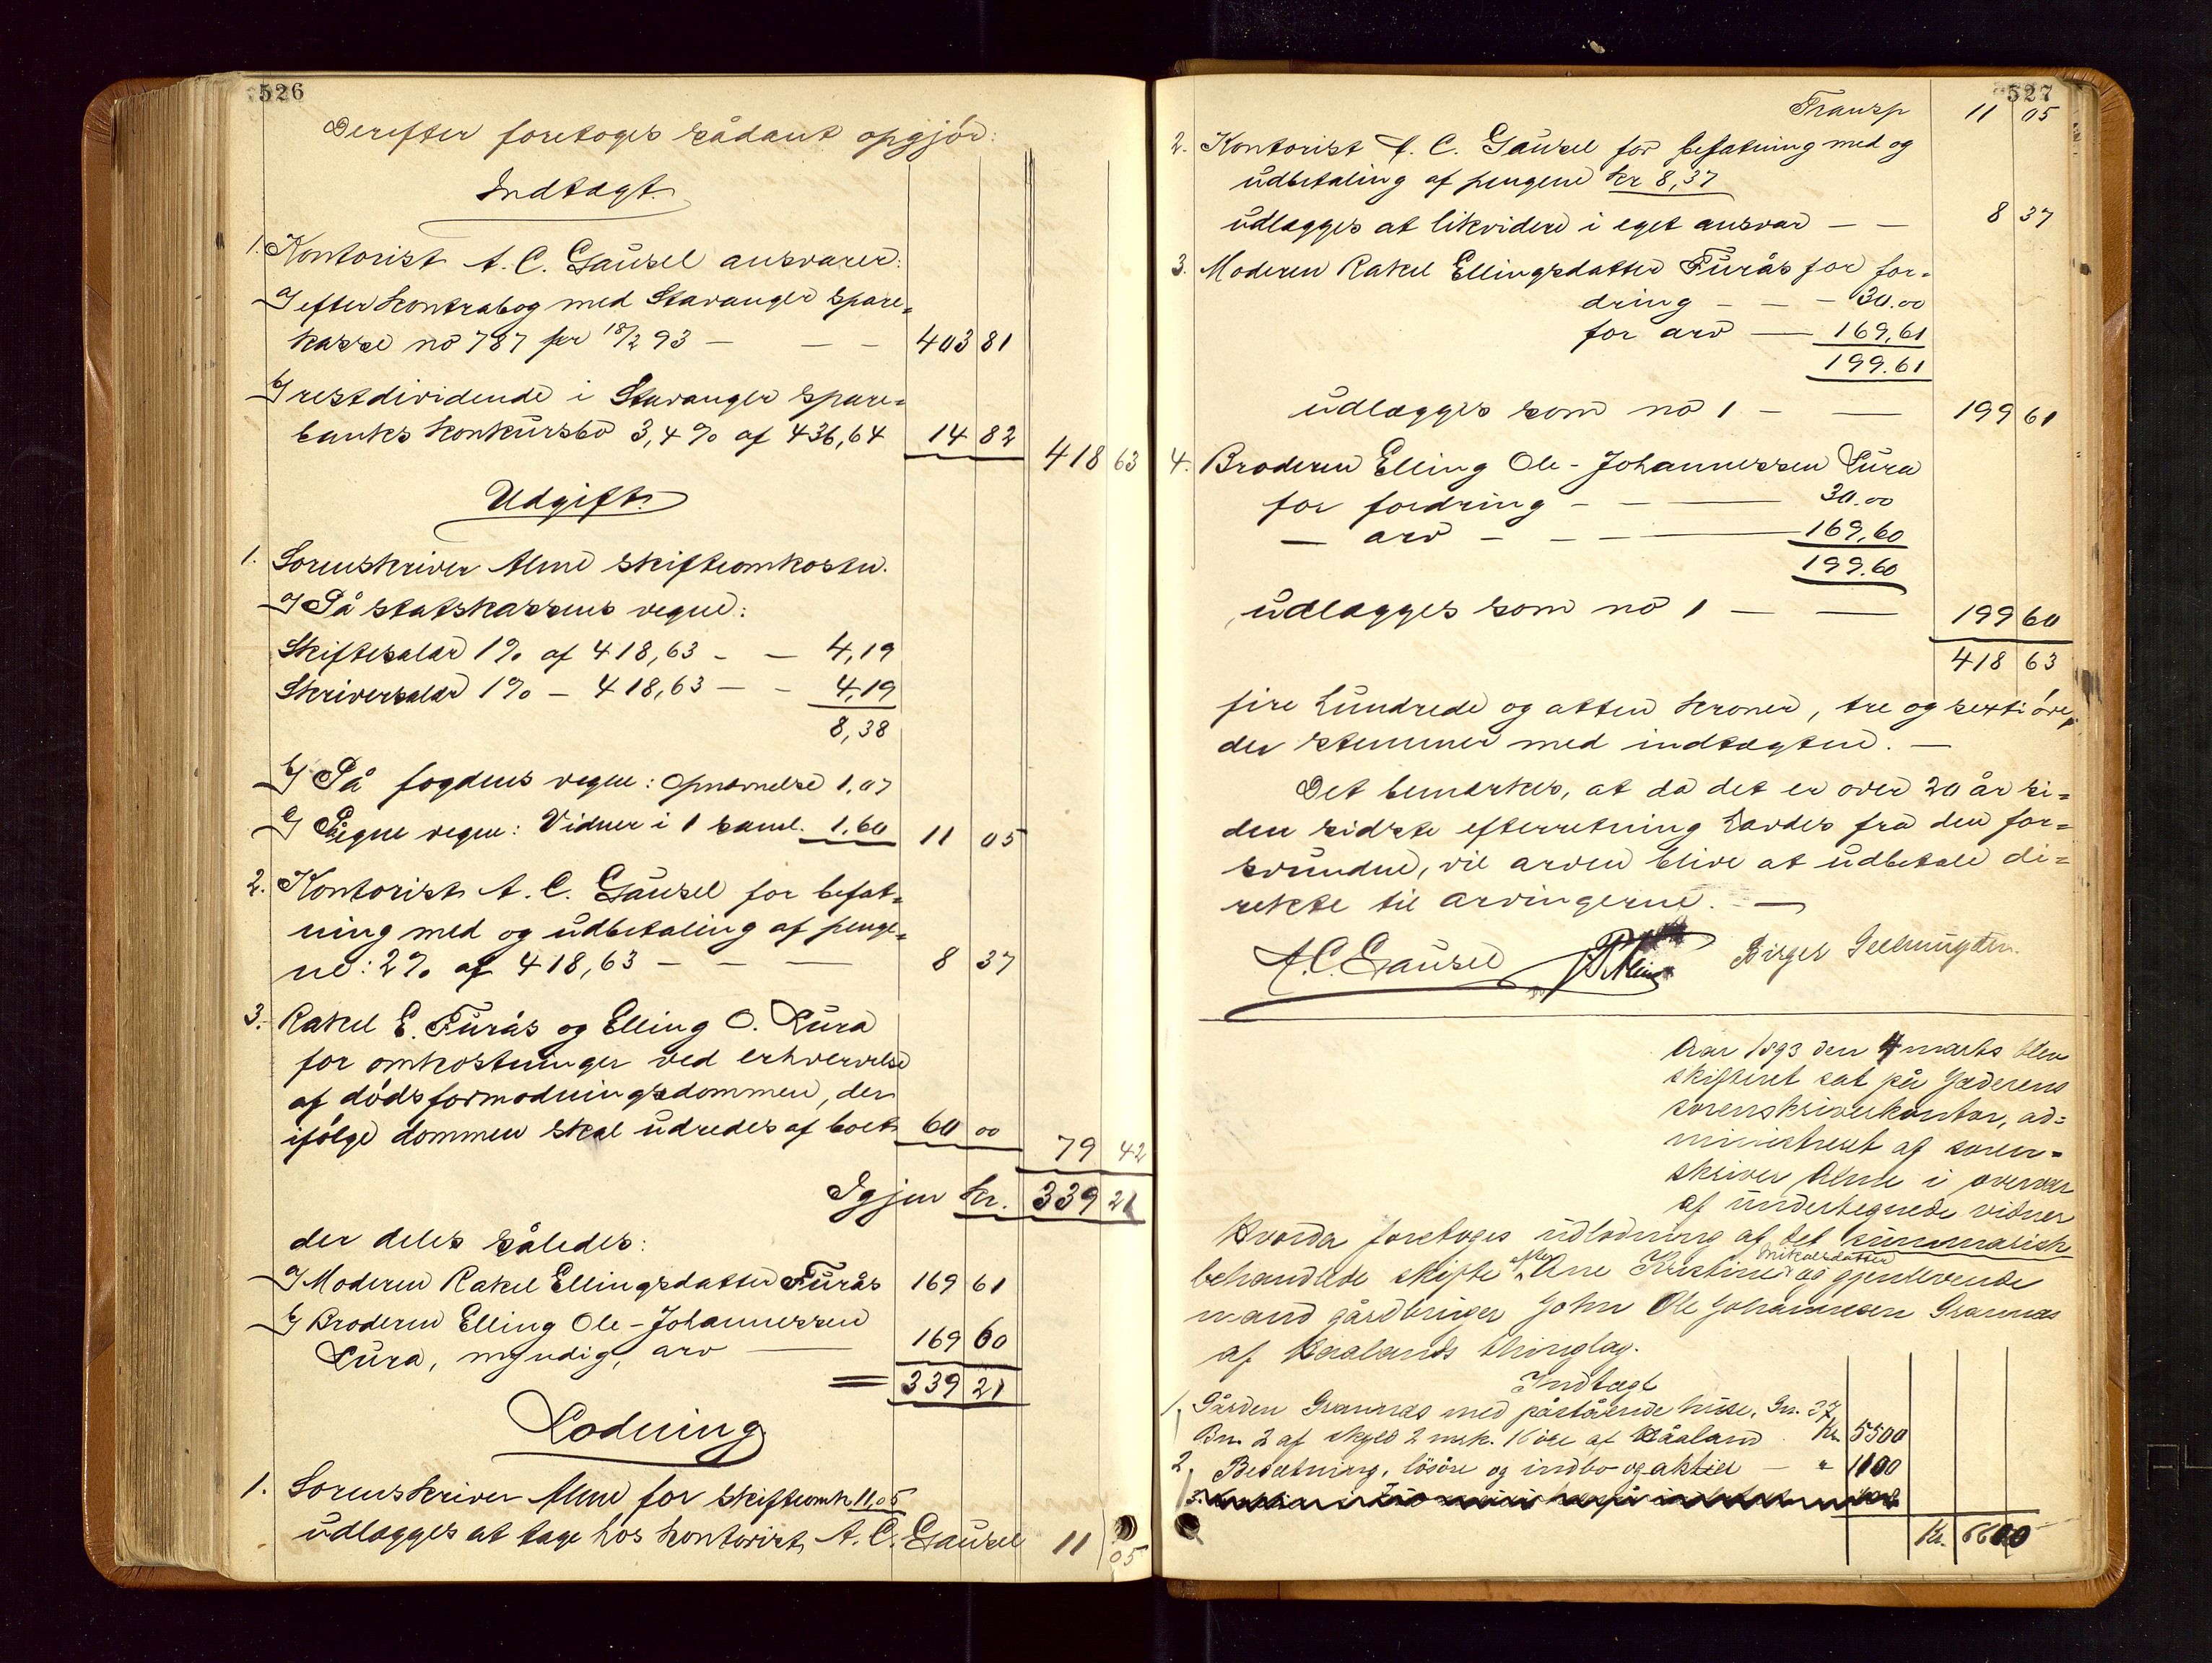 526
Derefter foretoges sådant opgjör:
Indtægt.
1. Kontorist A. C. Gausel ansvarer:
a/ efter kontrabog med Stavanger spare=
kasse no 787 pr 18/2 93 — — — 403 81
b/ restdividende i Stavanger spare=
banks konkursbo 3,4 % af 436,64 14 82 418 63
Udgift.
1. Sorenskriver Alme skifteomkostn.
a/ På statskassens vegne:
Skiftesalær 1% af 418,63 - — 4,19
Skriversalær 1% — 418,63 — - 4,19
8,38
b/ På fogdens vegne: Opnævnelse 1,07
c/ På egne vegne: Vidner i 1 saml. 1.60 11 05
2. Kontorist A. C. Gausel for befat=
ning med og udbetaling af penge=
ne: 2% af 418,63 — — — 8 37
3. Rakel E. Furås og Elling O. Lura
for omkostninger ved erhvervelse
af dödsformodningsdommen, der
ifölge dommen skal udredes af boet 60 00 79 42
Igjen kr. 339 21
der deles således:
a/ Moderen Rakel Ellingsdatter Furås 169 61
b/ Broderen Elling Ole-Johannessen
Lura, myndig, arv — 169 60
= 339 21
Lodning
1. Sorenskriver Alme for skifteomk 11,05
udlægges at tage hos kontorist A. C. Gausel 11 05
527
Transp 11 05
2. Kontorist A. C. Gausel for befatning med og
udbetaling af pengene kr 8,37
udlægges at likvidere i eget ansvar — — 8 37
3. Moderen Rakel Ellingsdatter Furås for for=
dring - — - 30.00
for arv — 169,61
199.61
udlægges som no 1 - — 199 61
4. Broderen Elling Ole-Johannessen Lura
for fordring - - — 30.00
— arv - — - — 169,60
199.60
udlægges som no 1 — — 199 60
418 63
fire hundrede og atten kroner, tre og sexti öre,
der stemmer med indtægten. —
Det bemærkes, at da det er over 20 år si=
den sidste efterretning havdes fra den for=
svundne, vil arven blive at udbetale di=
rekte til arvingerne. —
A. C. Gausel Alme Birger
Aar 1893 den 4 marts blev
skifteret sat på Jæderens
sorenskriverkontor, ad=
ministreret af soren=
skriver Alme i overvær
af undertegnede vidner
Hvorda foretoges udlodning af det summarisk
behandlede skifte efter Ane Kristine Mikalsdatter og gjenlevende
mand gårdbruger John Ole Johannesen Grannes
af Haalands thinglag.
Indtægt
1, Gården Grannes med påstående huse, Gn. 37
Bn. 2 af skyld 2 msk. 16 öre af Håland . Kr. 5500
2, Besætning, lösöre og indbo og aktier — " 1100
Kr. 6600